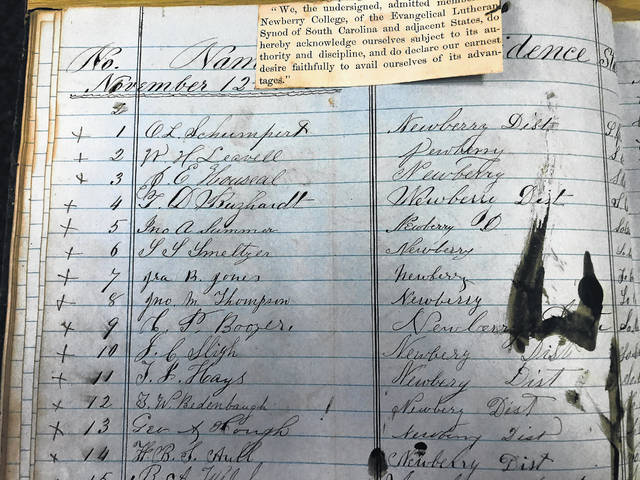 "We, the undersigned, admitted
Newberry College, of the Evangelical Lutheran
Synod of South Carolina and adjacent States, do
hereby acknowledge ourselves subject to its au-
thority and discipline, and do declare our earnest
desire faithfully to avail ourselves of its advan-
tages."
No. Nam idence
November 12
x 1 O L Schumpert Newberry Dist
x 2 W H Leavell Newberry
x 3 J E Houseal Newberry
x 4 Newberry Dist
x 5 Jno A Summer Newberry D
x 6 S S Smeltzer Newberry
x 7 Ira B. Jones Newberry
x 8 Jno M Thompson Newberry
x 9 C. P. Boozer. Newberry
x 10 J. C. Sligh Newberry Dist
x 11 T. J. Hays Newberry Dist
x 12 Z W Bedenbaugh Newberry Dist
x 13 Geo Newberry Dist
x 14 Hull Newberry Dist
15